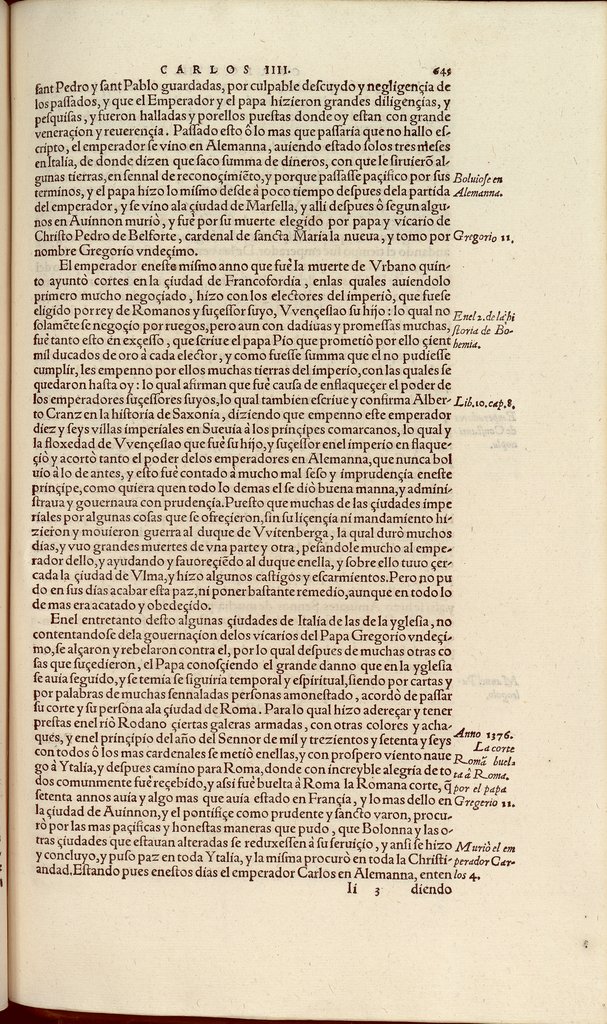 CARLOS IIII.
645
ſant Pedro y ſant Pablo guardadas, por culpable deſcuydo y negligençia de
los paſſados, y que el Emperador y el papa hizieron grandes diligençias, y
peſquiſas, y fueron halladas y porellos pueſtas donde oy eſtan con grande
veneraçion y reuerençia. Paſſado eſto ô lo mas que paſſaria que no hallo eſ-
cripto, el emperador ſe vino en Alemanna, auiendo eſtado ſolos tres meſes
en Italia, de donde dizen que ſaco ſumma de dineros, con que le ſiruierõ al-
gunas tierras, en ſennal de reconoçimiẽto, y porque paſſaſſe paçifico por ſus
Boluioſe en
terminos, y el papa hizo lo miſmo desde à poco tiempo deſpues dela partida
Alemanna.
del emperador, y ſe vino ala çiudad de Marſella, y alli deſpues ô ſegun algu-
nos en Auinnon murio, y fuè por ſu muerte elegido por papa y vicario de
Chriſto Pedro de Belforte, cardenal de ſancta Maria la nueua, y tomo por
Gregorio 11.
nombre Gregorio vndeçimo.
El emperador eneſte miſmo anno que fuè la muerte de Vrbano quin-
to ayuntò cortes en la çiudad de Francofordia, enlas quales auiendolo
primero mucho negoçiado, hizo con los electores del imperio, que fueſe
eligido por rey de Romanos y ſuçeſſor ſuyo, Vvençeſlao ſu hijo: lo qual no
Enel 2. de la hi
ſolamẽte ſe negoçio por ruegos, pero aun con dadiuas y promeſſas muchas,
ſtoria de Bo-
fuè tanto eſto en exçeſſo, que ſcriue el papa Pio que prometiò por ello çient
hemia.
mil ducados de oro à cada elector, y como fueſſe ſumma que el no pudieſſe
cumplir, les empenno por ellos muchas tierras del imperio, con las quales ſe
quedaron haſta oy: lo qual afirman que fuè cauſa de enflaqueçer el poder de
los emperadores ſuçeſſores ſuyos, lo qual tambien eſcriue y confirma Alber-
Lib. 10. cap. 8.
to Cranz en la hiſtoria de Saxonia, diziendo que empenno eſte emperador
diez y ſeys villas imperiales en Sueuia à los prinçipes comarcanos, lo qual y
la floxedad de Vvençeſlao que fuè ſu hijo, y ſuçeſſor enel imperio en flaque-
çiò y acortò tanto el poder delos emperadores en Alemanna, que nunca bol
uiò à lo de antes, y eſto fuè contado à mucho mal ſeſo y imprudençia eneſte
prinçipe, como quiera quen todo lo demas el ſe diò buena manna, y admini-
ſtraua y gouernaua con prudençia. Pueſto que muchas de las çiudades impe
riales por algunas coſas que ſe ofreçieron, ſin ſu liçençia ni mandamiento hi-
zieron y mouieron guerra al duque de Vvitenberga, la qual durò muchos
dias, y vuo grandes muertes de vna parte y otra, peſandole mucho al empe-
rador dello, y ayudando y fauoreçiẽdo al duque enella, y ſobre ello tuuo çer-
cada la çiudad de Vlma, y hizo algunos caſtigos y eſcarmientos. Pero no pu
do en ſus dias acabar eſta paz, ni poner baſtante remedio, aunque en todo lo
de mas era acatado y obedeçido.
Enel entretanto deſto algunas çiudades de Italia de las de la ygleſia, no
contentandoſe dela gouernaçion delos vicarios del Papa Gregorio vndeçi-
mo, ſe alçaron y rebelaron contra el, por lo qual deſpues de muchas otras co
ſas que ſuçedieron, el Papa conoſçiendo el grande danno que en la ygleſia
ſe auia ſeguido, y ſe temia ſe ſiguiria temporal y eſpiritual, ſiendo por cartas y
por palabras de muchas ſennaladas perſonas amoneſtado, acordò de paſſar
ſu corte y ſu perſona ala çiudad de Roma. Para lo qual hizo adereçar y tener
preſtas enel riò Rodano çiertas galeras armadas, con otras colores y acha-
ques, y enel prinçipio del año del Sennor de mil y trezientos y ſetenta y ſeys
Anno 1376.
con todos ô los mas cardenales ſe metiò enellas, y con proſpero viento naue
La corte
Romã buel-
gò à Ytalia, y deſpues camino para Roma, donde con increyble alegria de to
ta à Roma.
dos comunmente fuè reçebido, y aſsi fuè buelta à Roma la Romana corte, q̃
por el papa
ſetenta annos auia y algo mas que auia eſtado en Françia, y lo mas dello en
Gregorio 11.
la çiudad de Auinnon, y el pontifiçe como prudente y ſancto varon, procu-
rò por las mas paçificas y honeſtas maneras que pudo, que Bolonna y las o-
tras çiudades que eſtauan alteradas ſe reduxeſſen à ſu ſeruiçio, y anſi ſe hizo
Muriò el em
y concluyo, y puſo paz en toda Ytalia, y la miſma procurò en toda la Chriſti-
perador Car-
andad. Eſtando pues eneſtos dias el emperador Carlos en Alemanna, enten
los 4.
Ii 3 diendo